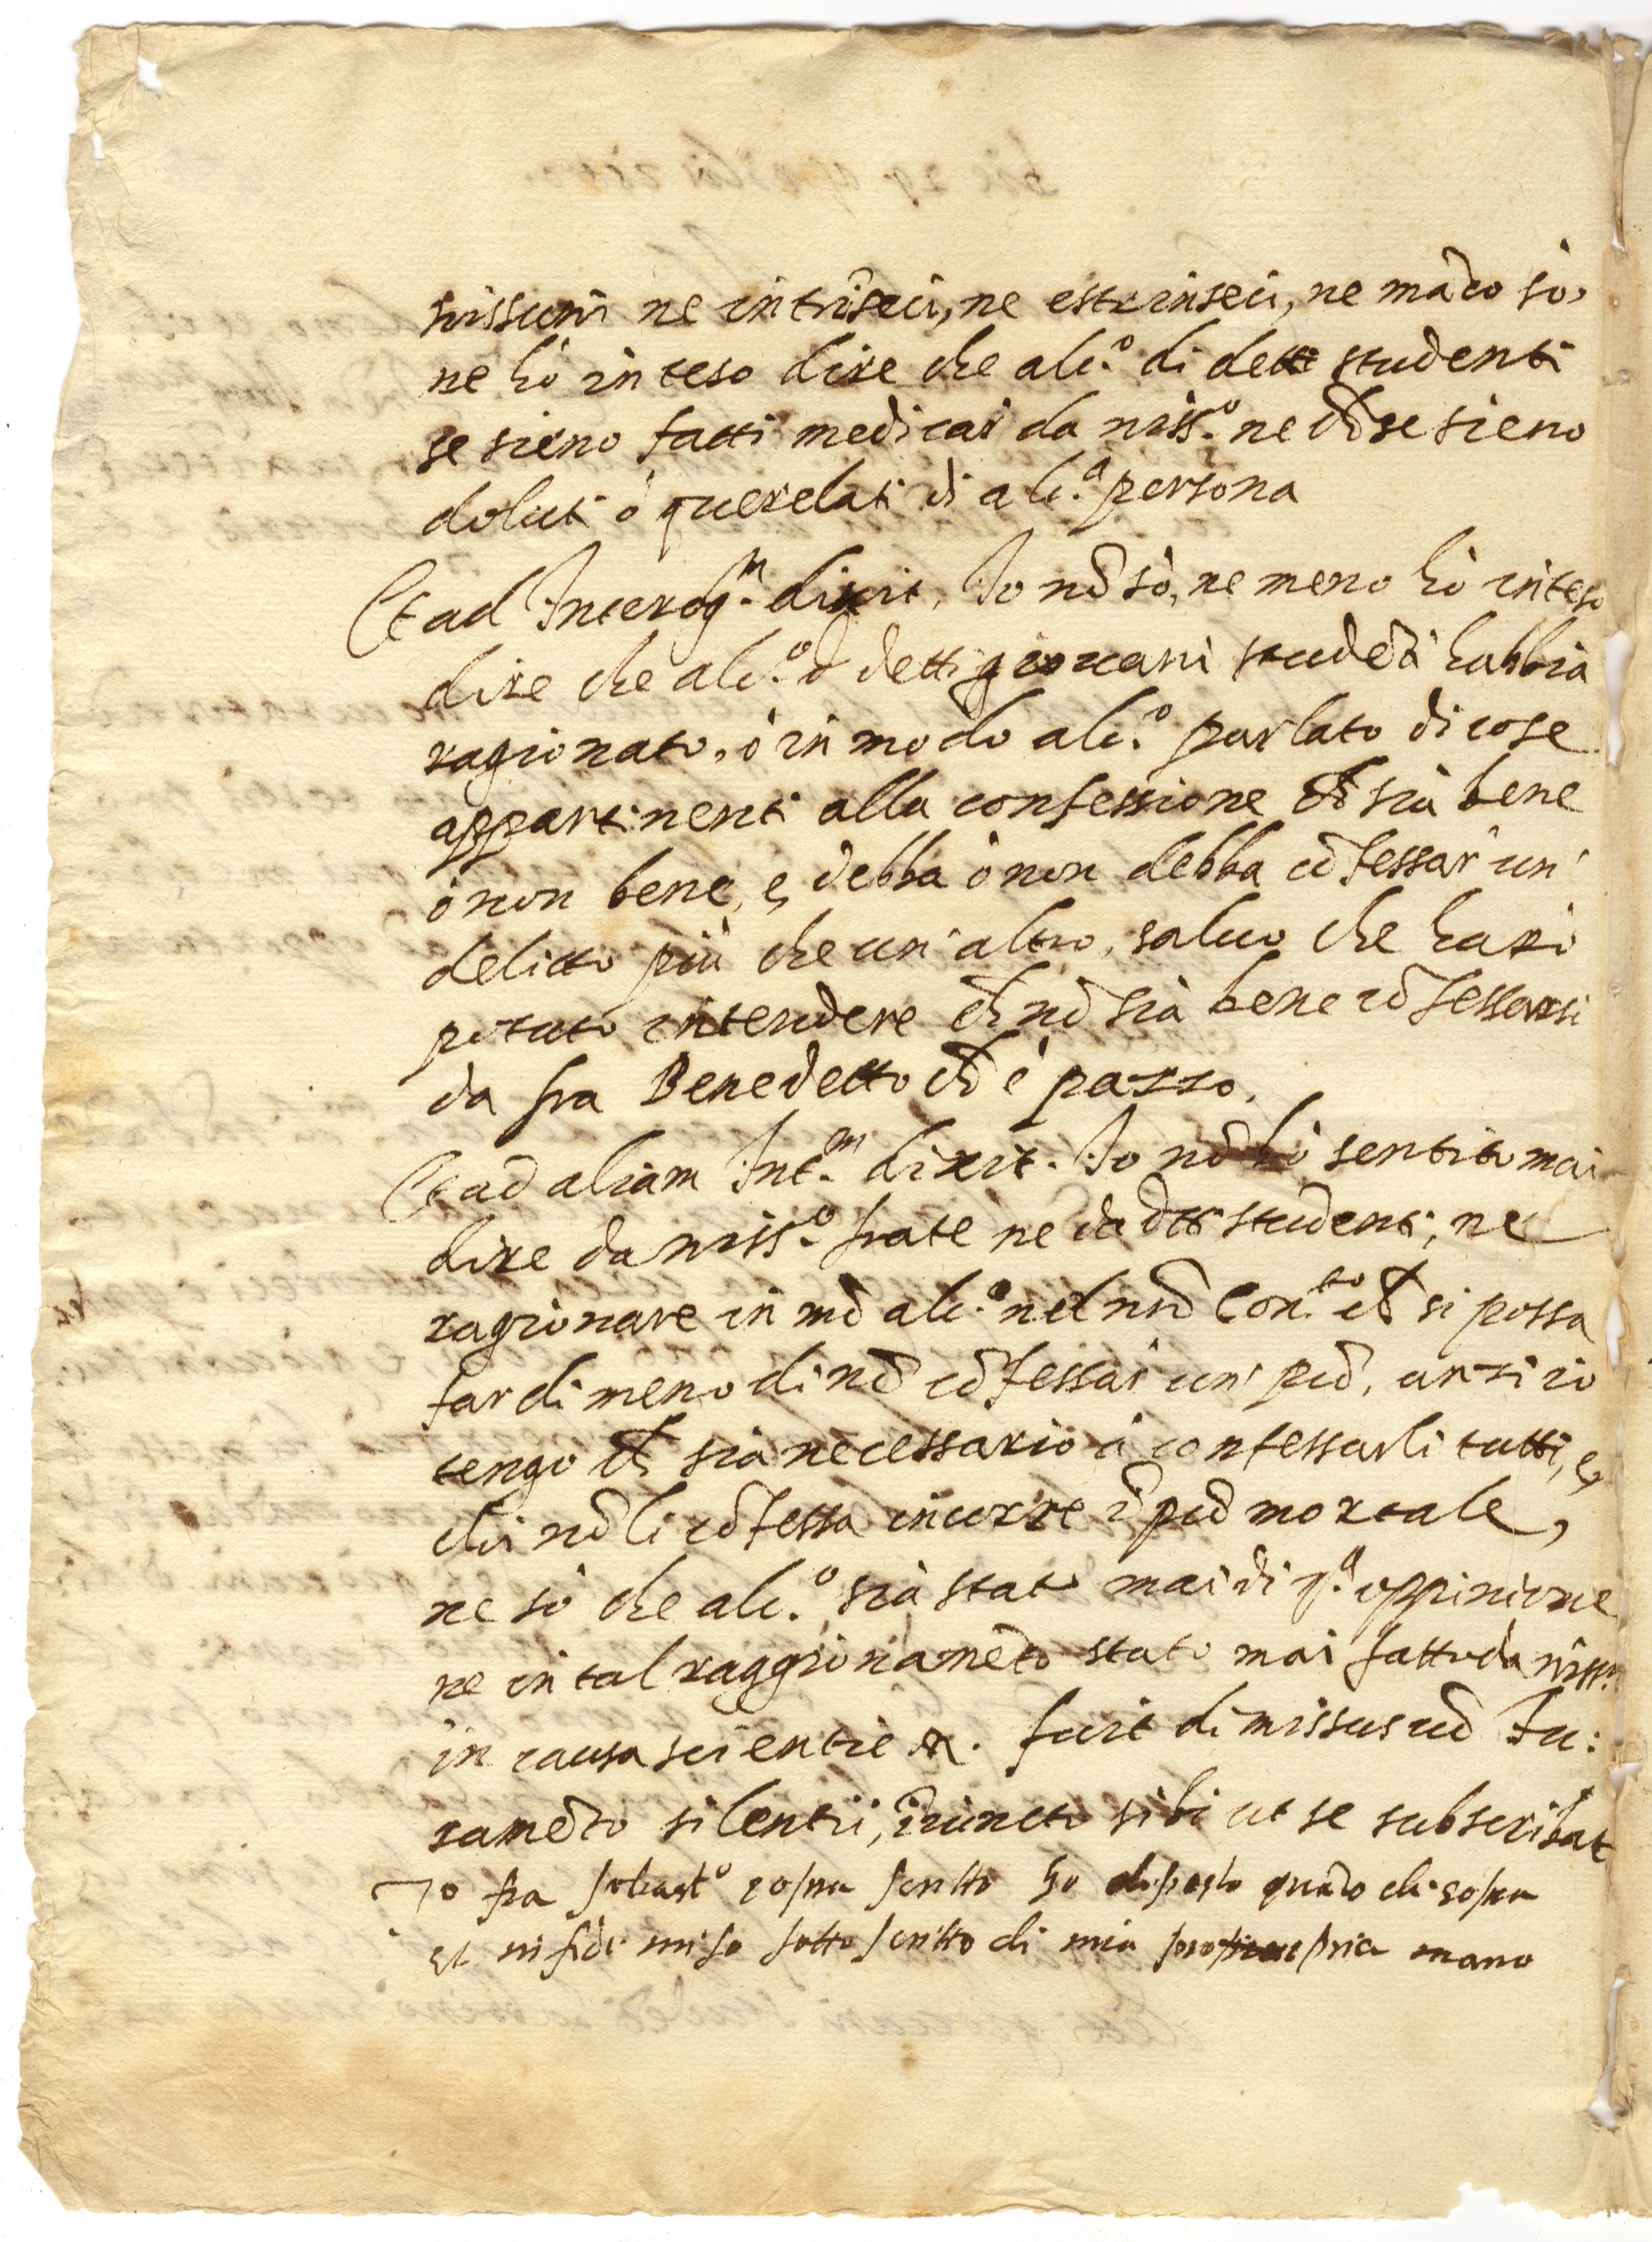 nissuni ne intrĩseci, ne estrinseci, ne mãco sò,
ne hò inteso dire che alc.º di detti studenti
se sieno fatti medicar da niss.º ne chẽ se sieno
doluti ò querelati di alc.ª persona
Et ad Interog.m dixit, Io nõ sò, ne meno hò inteso
dire che alc.º d detti giovani studẽti habbia
ragionato, ò in modo alc.º parlato di cose
appartinenti alla confessione ch̃ sia bene
ò non bene, e debba ò non debba cõfessar un'
delitto più che un'altro, salvo che hanò
potuto intendere ch̃ nõ sia bene cõfessarsi
da fra Benedetto ch̃ è pazzo.
Et ad aliam Int.m dixit. Io nõ hò sentito mai
dire da niss.º frate ne da dtti studenti, ne
ragionare in mõ alc.º nel nrõ Con.to ch̃ si possa
far di meno di nõ cõfessar un' pcõ, anzi io
tengo ch̃ sia necessario à confessarli tutti, e
chi nõ li cõfessa incorre ĩ pcõ mortale,
ne sò che alc.º sia stato mai di q.ª oppinione
ne in tal raggionamẽto stato mai fatto da niss.º
in causa scientie &. fuit dimissus cũ Iu:
ramẽto silentii, iniuncto sibi ut se subscribat
Io fra sebast.º sopra scritto ho deposto quãto di sopra
et in fede mi so sotto scritto di mia propria mano